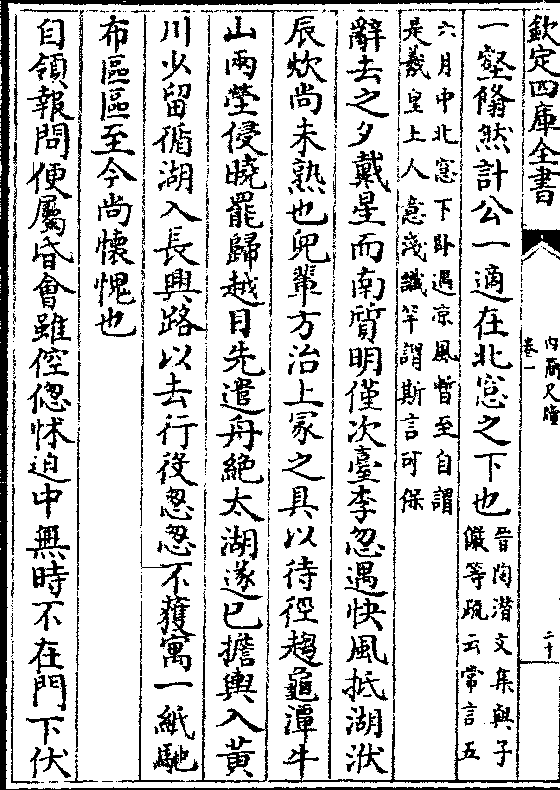 欽定四庫全書
內簡尺牘
卷一
二十
一壑翛然計公一適在北窻之下也
晉陶潛文集與子
儼等疏云常言五
六月中北窻下卧遇凉風暫至自謂
是羲皇上人意淺識罕謂斯言可保
辭去之夕戴星而南質明僅次臺李忽遇快風抵湖㳇
辰炊尚未熟也兒輩方治上冢之具以待徑趨龜潭牛
山兩塋侵曉罷歸越日先遣舟絶太湖遂已擔輿入黃
川少留循湖入長興路以去行役怱怱不獲寓一紙馳
布區區至今尚懷愧也
自領報問便屬昏會雖倥偬怵迫中無時不在門下伏